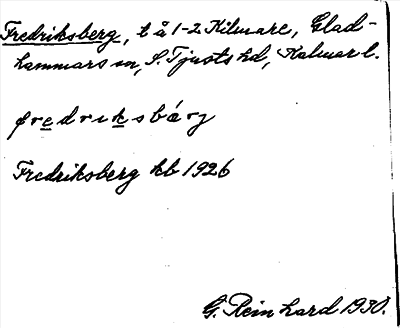 Fredriksberg, t å 1-2 Kilmare, Glad-
hammars sn, S. Tjusts hd, Kalmar l.
fredriksbárj
Fredriksberg kb 1926
G. Reinhard 1930.